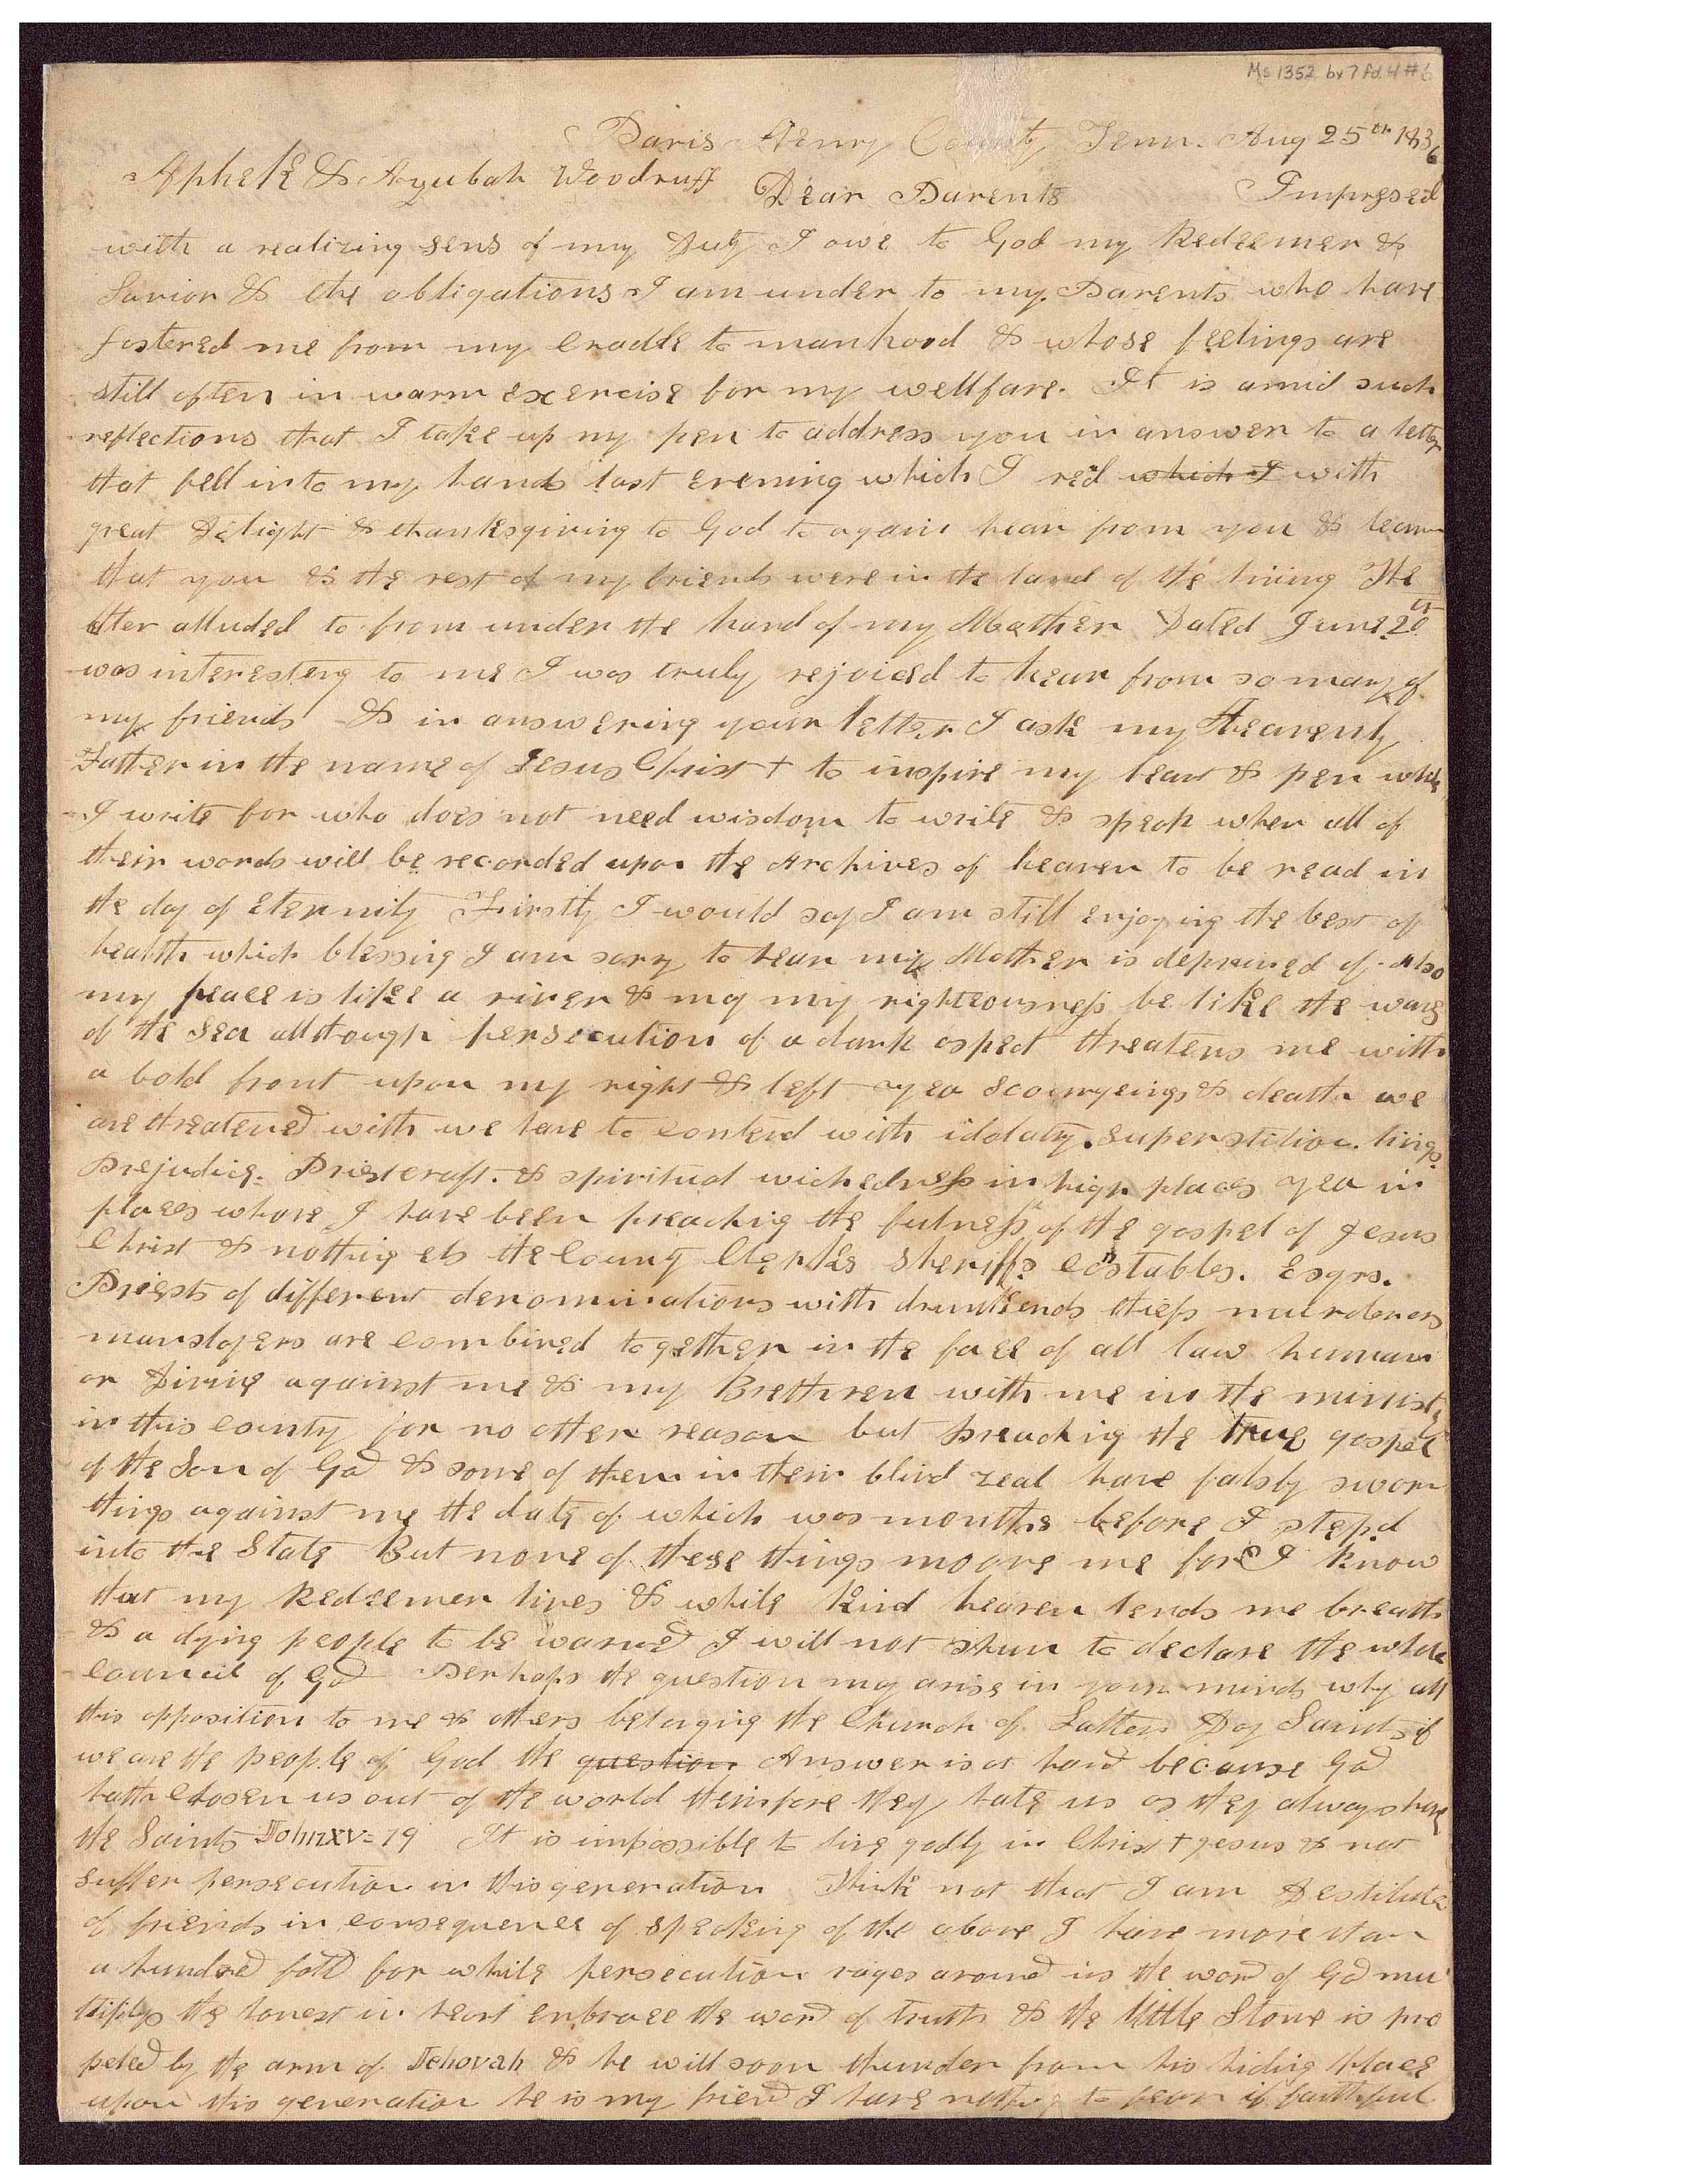 Ms 1352 bx 7 fd. 4 #6
Paris Henry County Tenn. Aug 25th 1836
Aphek & Azubah Woodruff Dear Parents Impresed
with a realizing sens of my duty I owe to God my Redeemer &
Savior & the obligations I am under to my Parents who have
fostered me from my cradle to manhood & whose feelings are
still often in warm exercise for my wellfare. It is amid such
reflections that I take up my pen to address you in answer to a letter
that fell into my hands last evening which I red which I with
great delight & thanksgiving to God to again hear from you & learn
that you & the rest of my friends were in the land of the living The
letter alluded to from under the hand of my Mother Dated June 20th
was interesting to me I was truly rejoiced to hear from so many of
my friends & in answering your letter I ask my Heavenly
Father in the name of Jesus Christ to inspire my heart & pen while
I write for who does not need wisdom to write & speak when all of
their words will be recorded upon the Archives of heaven to be read in
the day of Eternity Firstly I would say I am still enjoying the best of
health which blessing I am sory to hear my Mother is deprived of. Also
my peace is like a river & may my righteousness be like the waves
of the Sea allthough persecution of a dark aspect threatens me with
a bold front upon my right & left yea scourgeings & death we
are threatened with we have to contend with idolatry. superstition.
Prejudice. Priestcraft. & spiritual wickedness in high places yea in
places whare I have been preaching the fulness of the gospel of Jesus
Christ & nothing els the County Clerks Sheriffs constables. Esqrs.
Priests of different denominations with drunkends thiefs murderers
manslayers are combined together in the face of all law human
or Divine against me & my Brethren with me in the ministry
in this county for no other reason but preaching the true gospel
of the Son of God & some of them in their blind zeal have falsly sworn
things against me the date of which was months before I stepd
into the State But none of these things moove me fore I know
that my Redeemer lives & while kind heaven lends me breath
& a dying people to be warned I will not shun to declare the whole
council of God Perhaps the question may arise in your minds why all
this opposition to me & others belonging the Church of Latter Day Saints if
we are the people of God the question Answer is at hand because God
hath chosen us out of the world therefore they hate us as they always have
the Saints John XV=19 It is impossible to live godly in Christ Jesus & not
suffer persecution in this generation Think not that I am Destitute
of friends in consequence of speaking of the above I have more than
a hundred fold for while persecution rages around us the word of God mul
tiplys the honest in heart enbrace the word of truth & the little Stone is pro
peled by the arm of Jehovah & he will soon thunder from his hiding place
upon this generation he is my friend I have nothing to fear if faithful